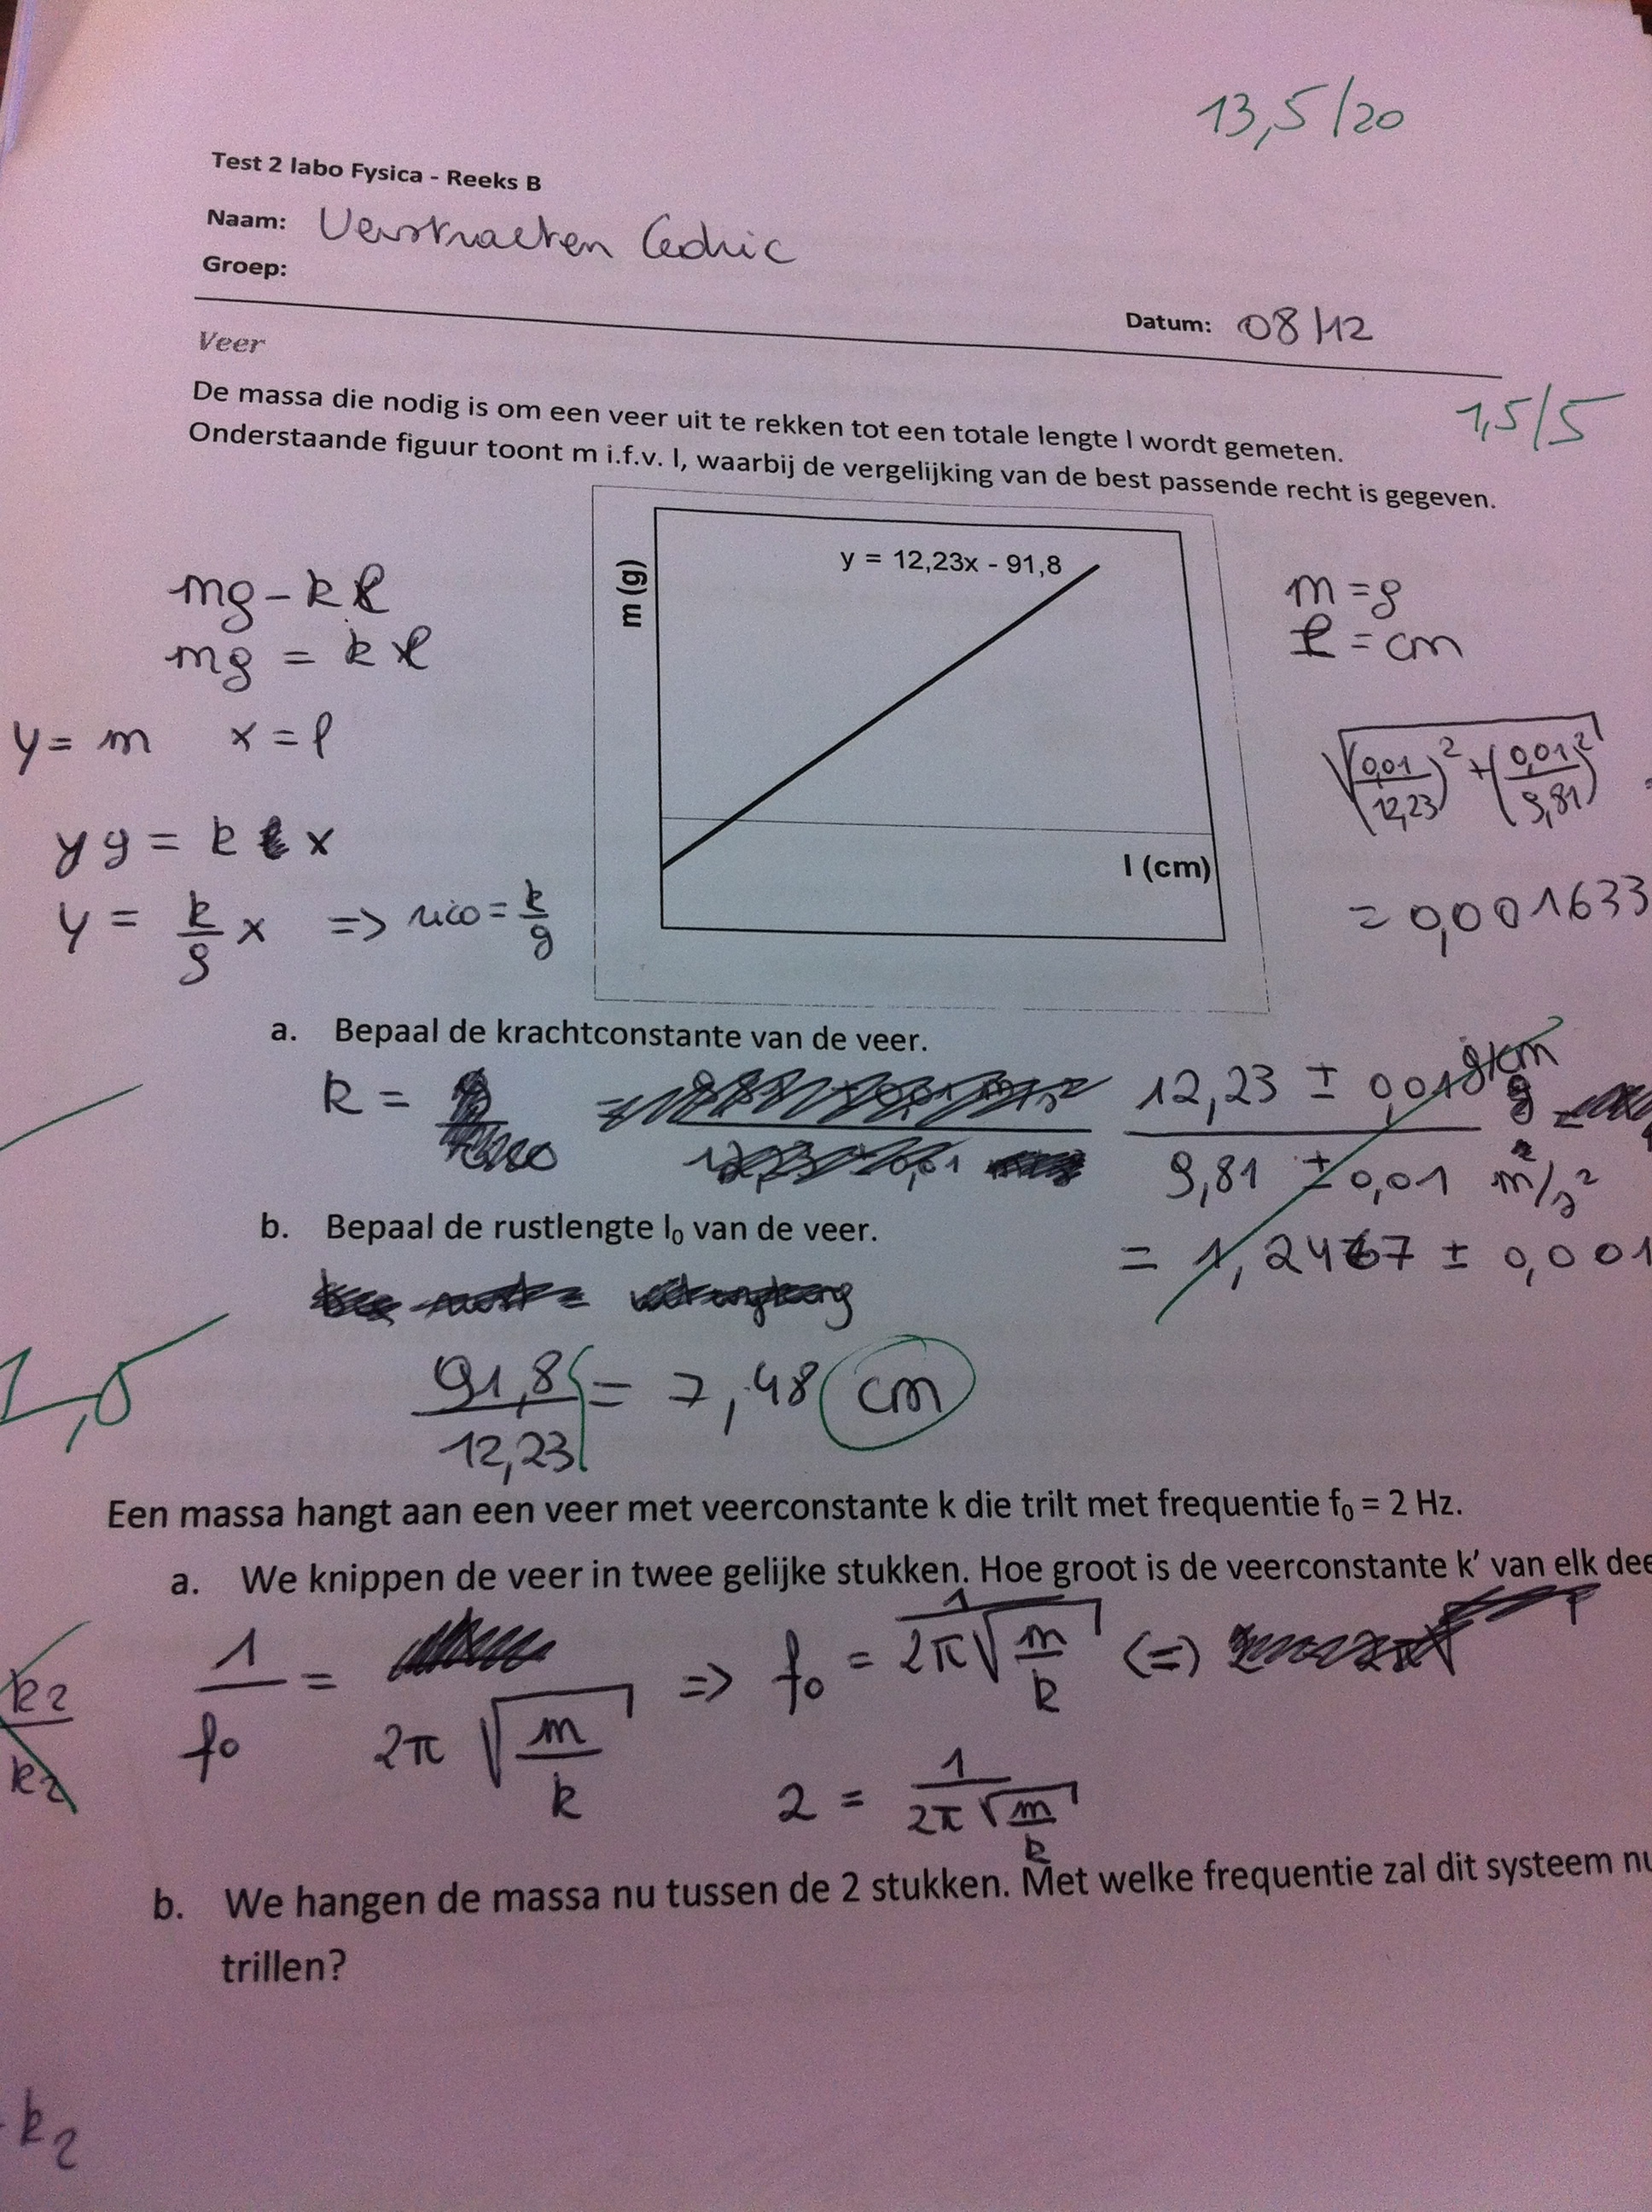 13,5/20
Test 2 labo Fysica - Reeks B
Naam: Verstraeten Cedric
Groep:
Datum: 08/12
Veer
1,5/5
De massa die nodig is om een veer uit te rekken tot een totale lengte l wordt gemeten.
Onderstaande figuur toont m i.f.v. l, waarbij de vergelijking van de best passende recht is gegeven.
m (g)
y = 12,23x - 91,8
l (cm)
mg - kl
mg = kl
y = m x = l
yg = k x
y = k/g x => rico = k/g
m = g
l = cm
√((0,01/12,23)² + (0,01/9,81)²)
= 0,001633
a. Bepaal de krachtconstante van de veer.
k =
12,23 ± 0,01 g/cm
9,81 ± 0,01 m/s²
= 1,2467 ± 0,001
b. Bepaal de rustlengte l₀ van de veer.
1,5
91,8/12,23 = 7,48 cm
Een massa hangt aan een veer met veerconstante k die trilt met frequentie f₀ = 2 Hz.
a. We knippen de veer in twee gelijke stukken. Hoe groot is de veerconstante k' van elk dee
k2/k2
1/f₀ = 2π √(m/k) => f₀ = 1/(2π√(m/k)) (=)
2 = 1/(2π√(m/k))
b. We hangen de massa nu tussen de 2 stukken. Met welke frequentie zal dit systeem nu
trillen?
k2